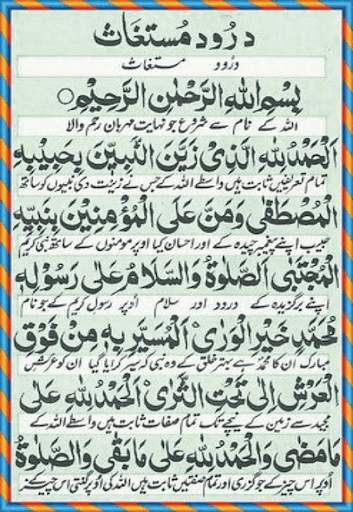 درود مستغاث
درود مستغاث
بِسْمِ اللهِ الرَّحْمٰنِ الرَّحِيْمِ
اللہ کے نام سے شروع جو نہایت مہربان رحم والا
اَلْحَمْدُ لِلّٰهِ الَّذِيْ زَيَّنَ النَّبِيِّيْنَ بِحَبِيْبِهِ
تمام تعریفیں ثابت ہیں واسطے اللہ کے جس نے زینت دی نبیوں کو ساتھ
الْمُصْطَفٰى وَمَنَّ عَلَى الْمُؤْمِنِيْنَ بِنَبِيِّهِ
حبیب اپنے پیغمبر چیدہ کے اور احسان کیا اوپر مومنوں کے ساتھ نبی کریم
الْمُجْتَبٰى الصَّلٰوةُ وَالسَّلَامُ عَلٰى رَسُوْلِهِ
اپنے برگزیدہ کے درود اور سلام اوپر رسول کریم کے جو نام
مُحَمَّدٍ خَيْرِ الْوَرٰى اَلْمُسَيَّرِ بِهِ مِنْ فَوْقِ
مبارک ان کا محمدؐ ہے بہتر خلق کے وہ نبی کہ سیر کرایا گیا ان کو عرش
الْعَرْشِ اِلٰى تَحْتِ الثَّرٰى اَلْحَمْدُ لِلّٰهِ عَلٰى
مجید سے زمین کے نیچے تک تمام صفات ثابت ہیں واسطے اللہ کے
مَا مَضٰى وَالْحَمْدُ لِلّٰهِ عَلٰى مَا بَقٰى وَالصَّلٰوةُ
اوپر اس چیز کے جو گزری اور تمام صفتیں ثابت ہیں اللہ کی اوپر اس چیز کے